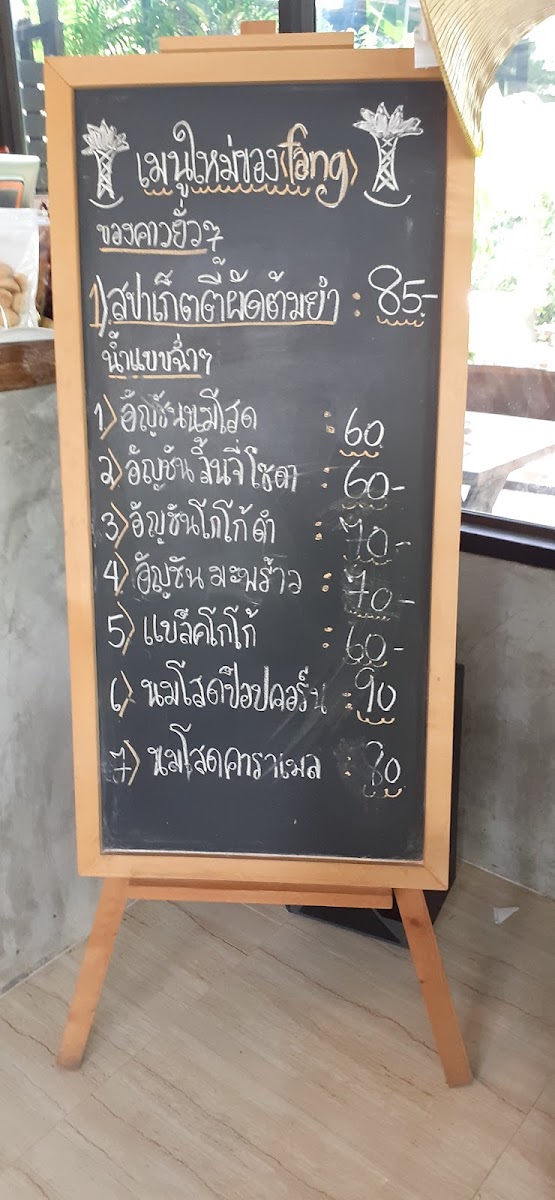 เมนูใหม่ของ(fang)
ของคาวยั่วๆ
1) สปาเก็ตตี้ผัดต้มยำ : 85-
น้ำแบบฉ่ำๆ
1) อัญชันนมสด : 60
2) อัญชันลิ้นจี่โซดา : 60-
3) อัญชันโกโก้ดำ : 70-
4) อัญชันมะพร้าว : 70-
5) แบล็คโกโก้ : 60-
6) นมสดป๊อปคอร์น : 90
7) นมสดคาราเมล : 80